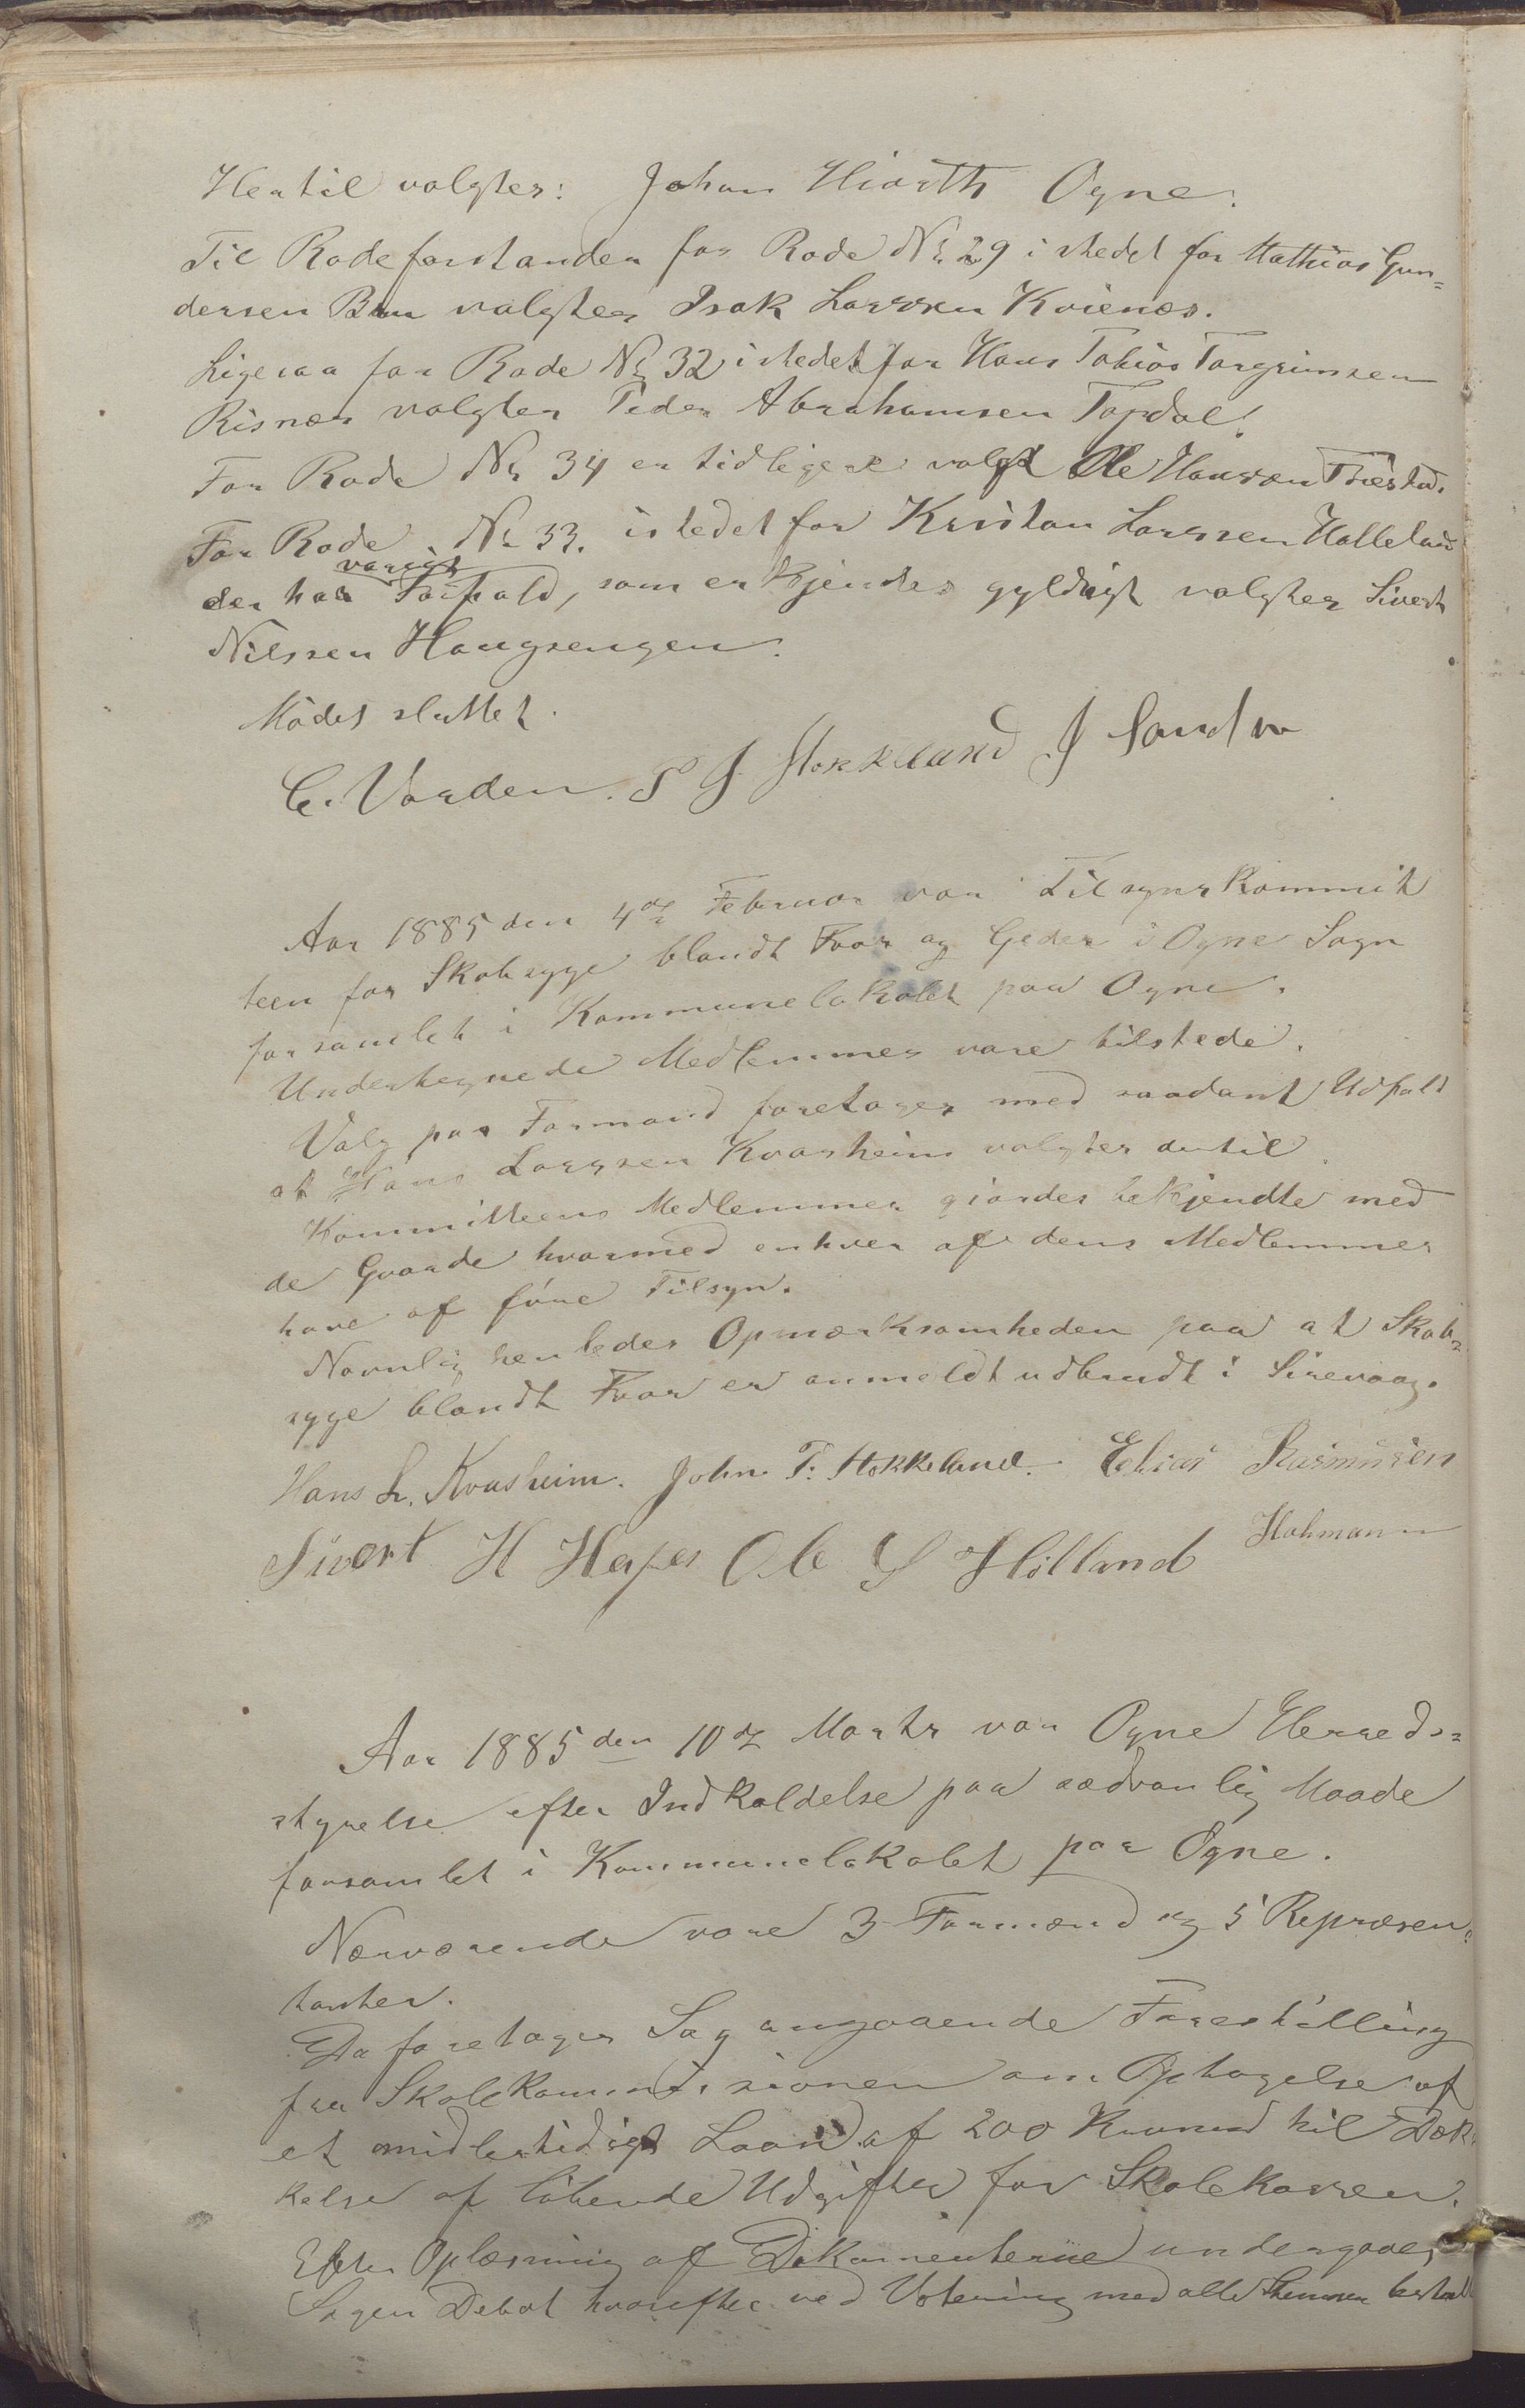 Hertil valgtes: Johan Hiorth Ogne.
Til Rodeforstander for Rode No 29 istedet for Mathias Gun=
dersen Bru valgtes Isak Larssen Kvienes.
Ligesaa for Rode No 32 istedet for Hans Tobias Torgrimsen
Risnes valgtes Peder Abrahamsen Topdal.
For Rode No 34 er tidligere valgt Ole Hanssen
For Rode No 33. istedet for Kristan Larssen Helleland
der har varigt Forfald, som erkjendes gyldigt valgtes Sivert
Nilssen Haugsengen.
Mödet sluttet.
C. Varden. S J Stokkeland J Sandve
Aar 1885 den 4de Februar var Tilsynskommit
teen for Skabsyge blandt Faar og Geder i Ogne Sogn
forsamlet i Kommunelokalet paa Ogne.
Undertegnede Medlemmer vare tilstede.
Valg paa Formand foretoges med saadant Udfald
at Hans Larssen Kvasheim valgtes dertil.
Kommitteens Medlemmer gjordes bekjendte med
de Gaarde hvormed enhver af dens Medlemmer
have at före Tilsyn.
Navnlig henledes Opmærksomheden paa at Skab=
syge blandt Faar er anmeldt udbrudt i Sirevaag.
Hans L. Kvasheim. John T. Stokkeland. Elias Rasmusen
Sivert H Ole S Hölland Holmann
Aar 1885 den 10de Marts var Ogne Herreds=
styrelse efter Indkaldelse paa sædvanlig Maade
forsamlet i Kommunelokalet paa Ogne.
Nærværende vare 3 Formænd og 5 Repræsen=
tanter.
Da foretages Sag angaaende Forestilling
fra Skolekommissionen om Optagelse af
et midlertidigt Laan af 200 Kroner til Dæk=
kelse af löbende Udgifter for Skolekassen.
Efter Oplæsning af Dokumenterne undergaaes
Sagen Debat hvorefter ved Votering med alle Stemmer